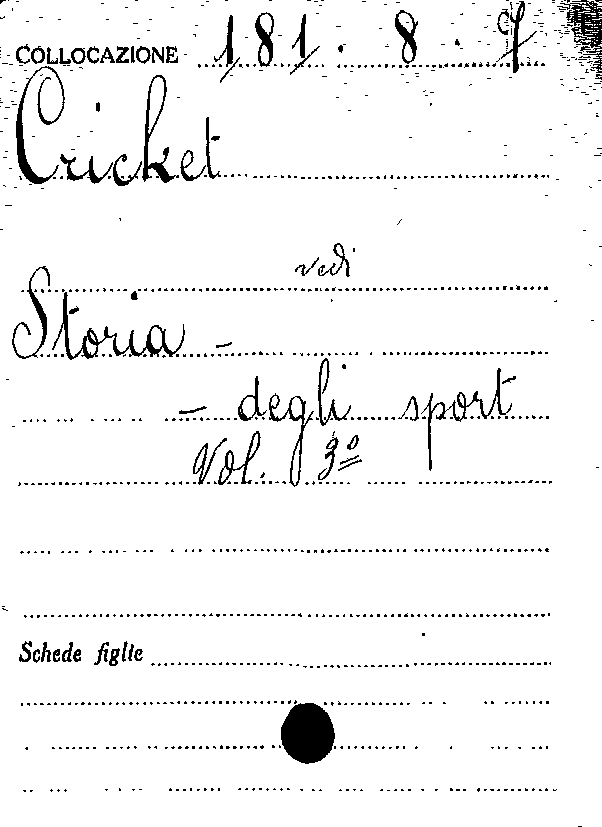 COLLOCAZIONE 181. 8. 7
Cricket
vedi
Storia -
- degli sport
Vol. 3º
Schede figlie